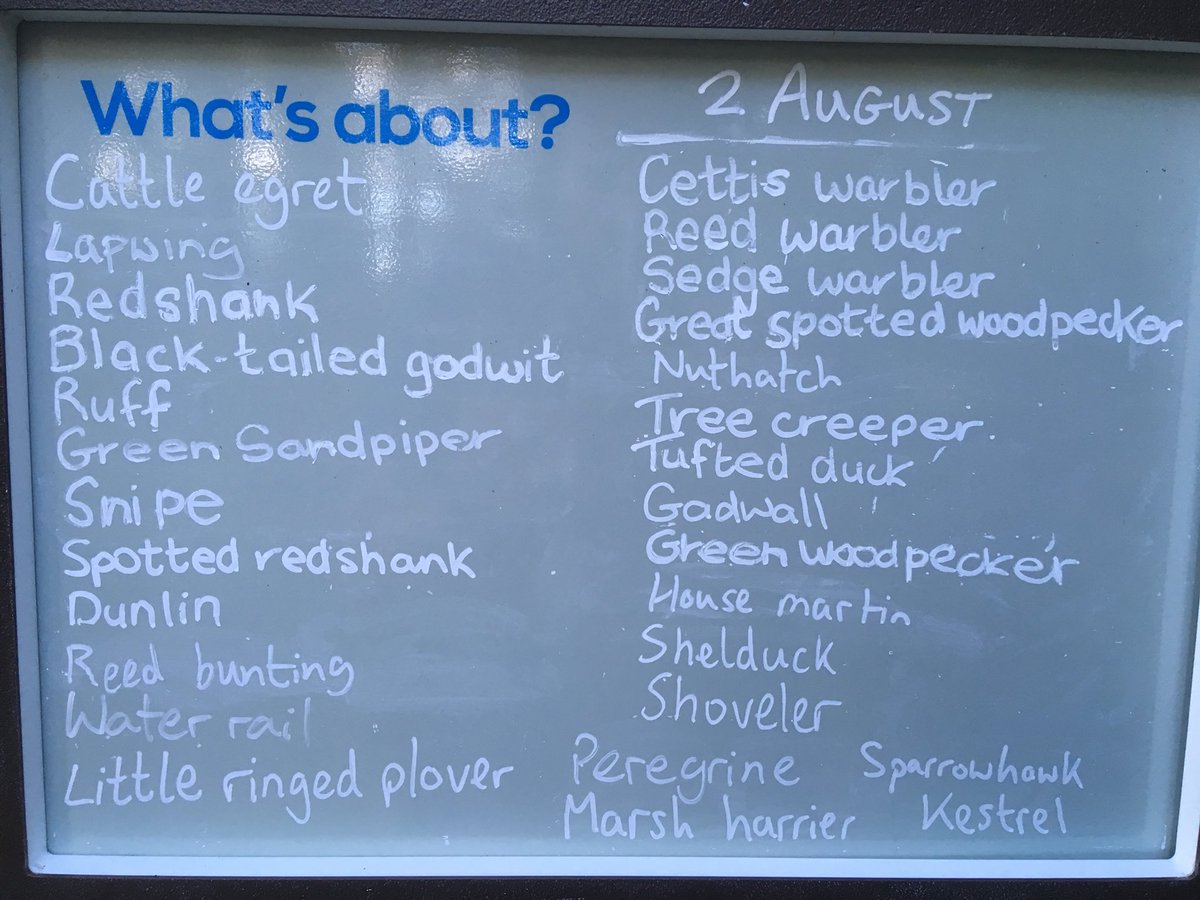 What's about?
Cattle egret
Lapwing
Redshank
Black-tailed godwit
Ruff
Green Sandpiper
Snipe
Spotted redshank
Dunlin
Reed bunting
Water rail
Little ringed plover
2 August
Cettis warbler
Reed warbler
Sedge warbler
Great spotted woodpecker
Nuthatch
Tree creeper
Tufted duck
Gadwall
Green woodpecker
House martin
Shelduck
Shoveler
Peregrine Sparrowhawk
Marsh harrier Kestrel